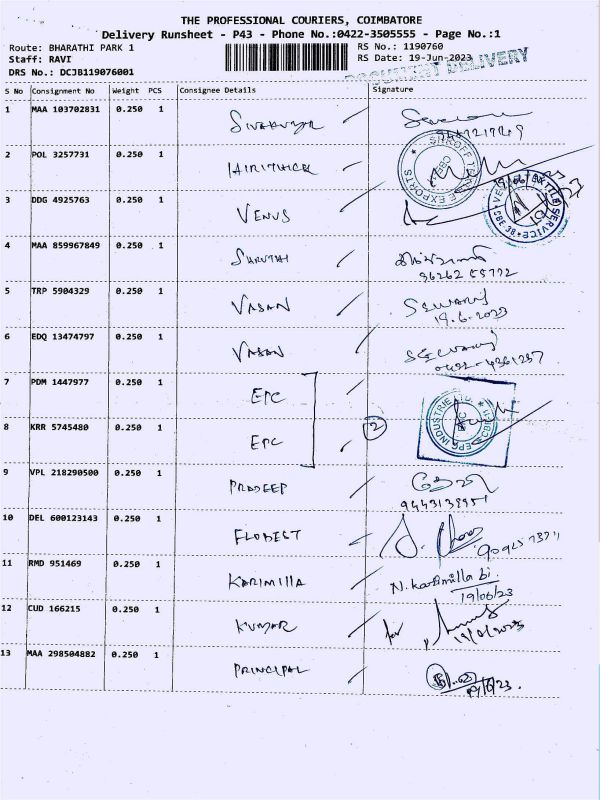 THE PROFESSIONAL COURIERS, COIMBATORE
Delivery Runsheet - P43 - Phone No.:0422-3505555 - Page No.:1
Route: BHARATHI PARK 1
RS No.: 1190760
Staff: RAVI
RS Date: 19-Jun-2023
DRS No.: DCJB119076001
DOCUMENT DELIVERY
S No Consignment No Weight PCS Consignee Details Signature
1 MAA 103702831 0.250 1
2 POL 3257731 0.250 1
3 DDG 4925763 0.250 1 VENUS
4 MAA 859967849 0.250 1 SHRUTHI
5 TRP 5904329 0.250 1 VASAN
19.6.2023
6 EDQ 13474797 0.250 1 VASAN
7 PDM 1447977 0.250 1 EPC
8 KRR 5745480 0.250 1 EPC 2
9 VPL 218290500 0.250 1 PRADEEP
10 DEL 600123143 0.250 1
11 RMD 951469 0.250 1 KARIMILLA N. karimilla bi
19/06/23
12 CUD 166215 0.250 1 KUMAR for
13 MAA 298504882 0.250 1 PRINCIPAL